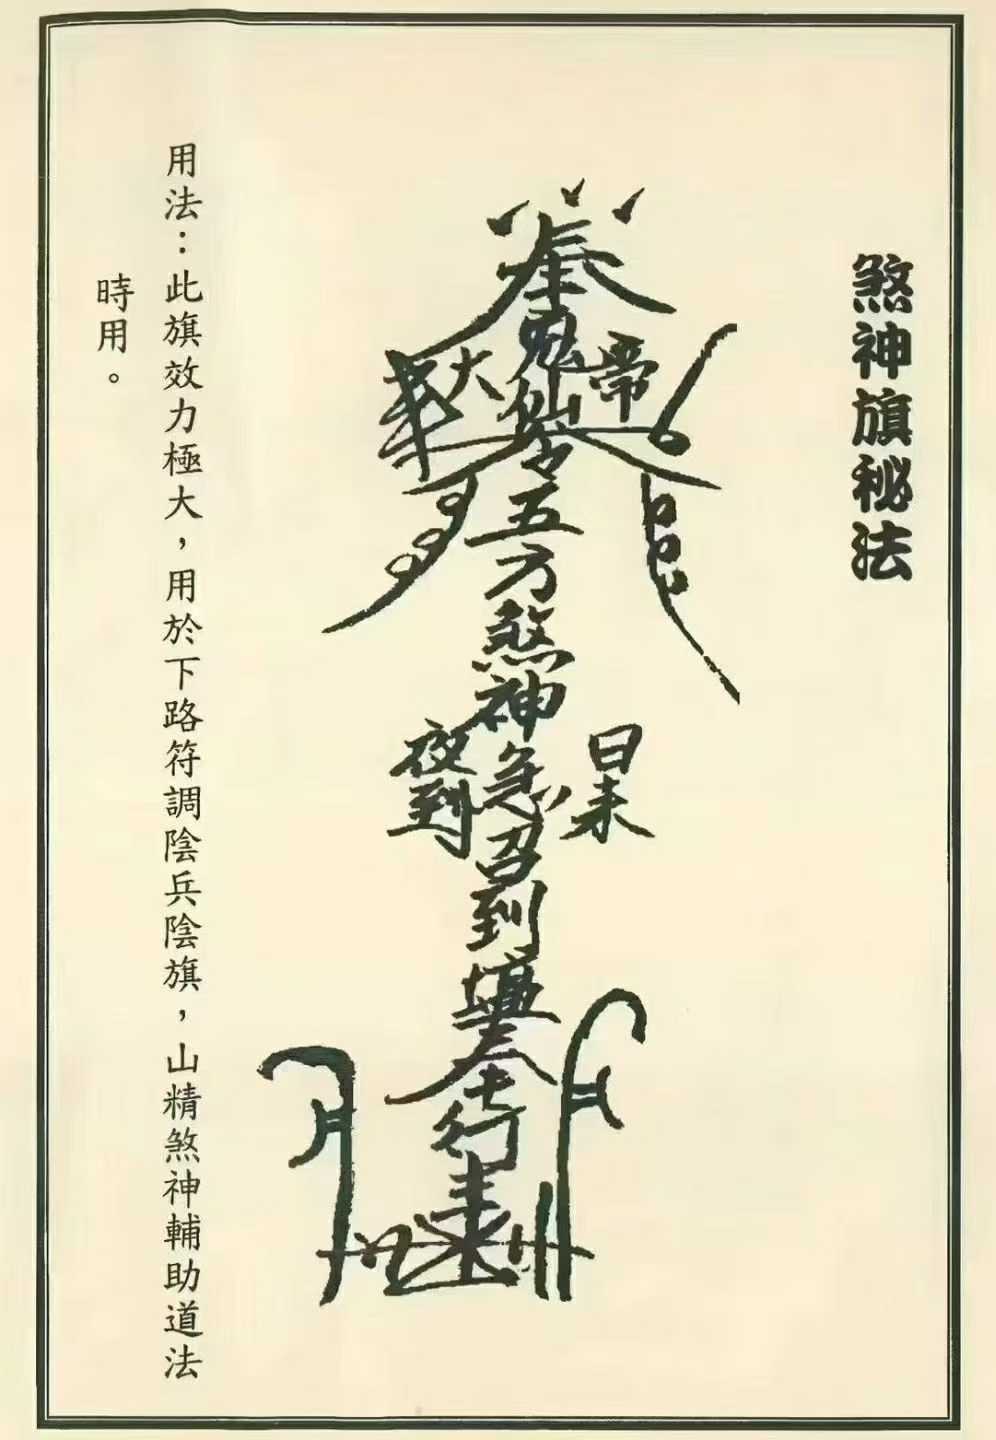 煞神旗秘法
奉
鬼仙令五方煞神急召到壇奉行
大帝
日來
夜到
用法：此旗效力極大，用於下路符調陰兵陰旗，山精煞神輔助道法
時用。